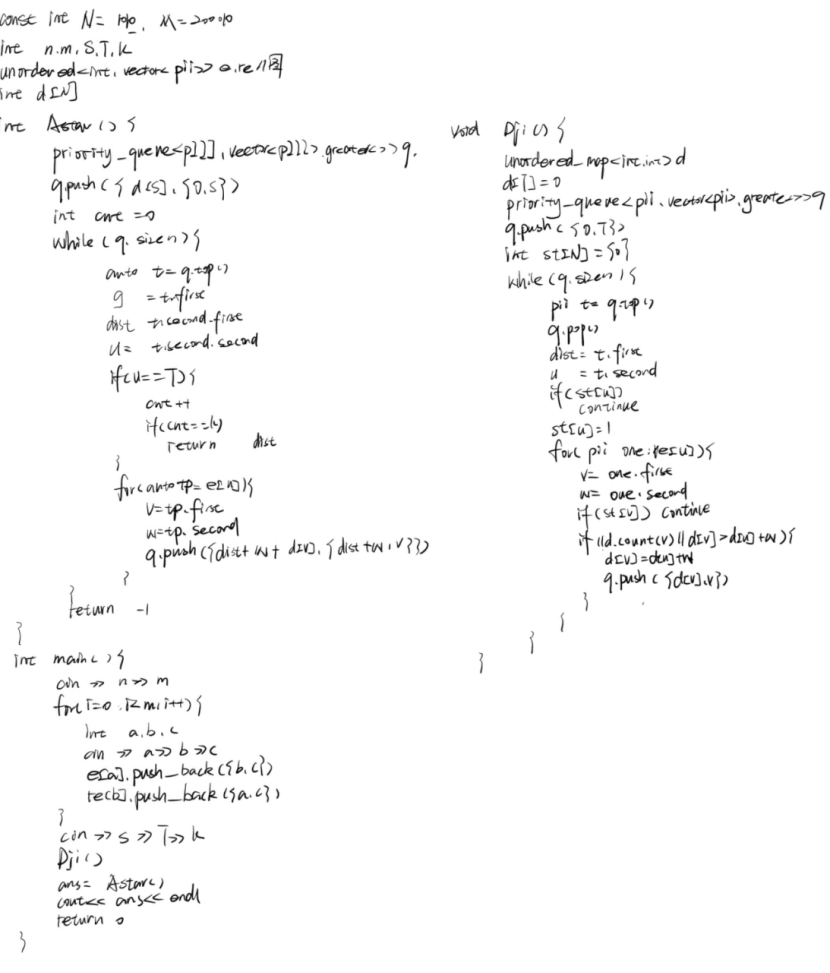 const int N= 1010, M=200010
int n.m,S,T,K
unordered<int, vector<pii>> e,re //图
int d[N]
int Astar () {
priority_queue<pIII, vector<pIII>,greater<>> q.
q.push({ d[S], {0,S})
int cnt =0
while (q.size()){
auto t= q.top()
g = t.first
dist t.second.first
u= t.second.second
if(u==T){
cnt++
if(cnt==k)
return dist
}
for(auto tp= e[u]){
v=tp.first
w=tp.second
q.push({dist+w+d[v], {dist+w,v}})
}
}
return -1
}
int main() {
cin >> n>> m
for(i=0,i<m;i++){
int a,b,c
cin >> a>>b>>c
e[a].push_back({b,c})
re[b].push_back({a,c})
}
cin >> S >> T>> k
Dji()
ans= Astar()
cout<< ans<< endl
return 0
}
void Dji() {
unordered_map<int,int> d
d[T]=0
priority_queue<pii, vector<pii>,greater<>>q
q.push({0,T})
int st[N]={0}
while(q.size()){
pii t= q.top()
q.pop()
dist= t.first
u = t.second
if(st[u])
continue
st[u]=1
for(pii one:re[u]){
v= one.first
w= one.second
if(st[v]) continue
if(!d.count(v)||d[v]>d[u]+w){
d[v]=d[u]+w
q.push({d[v],v})
}
}
}
}